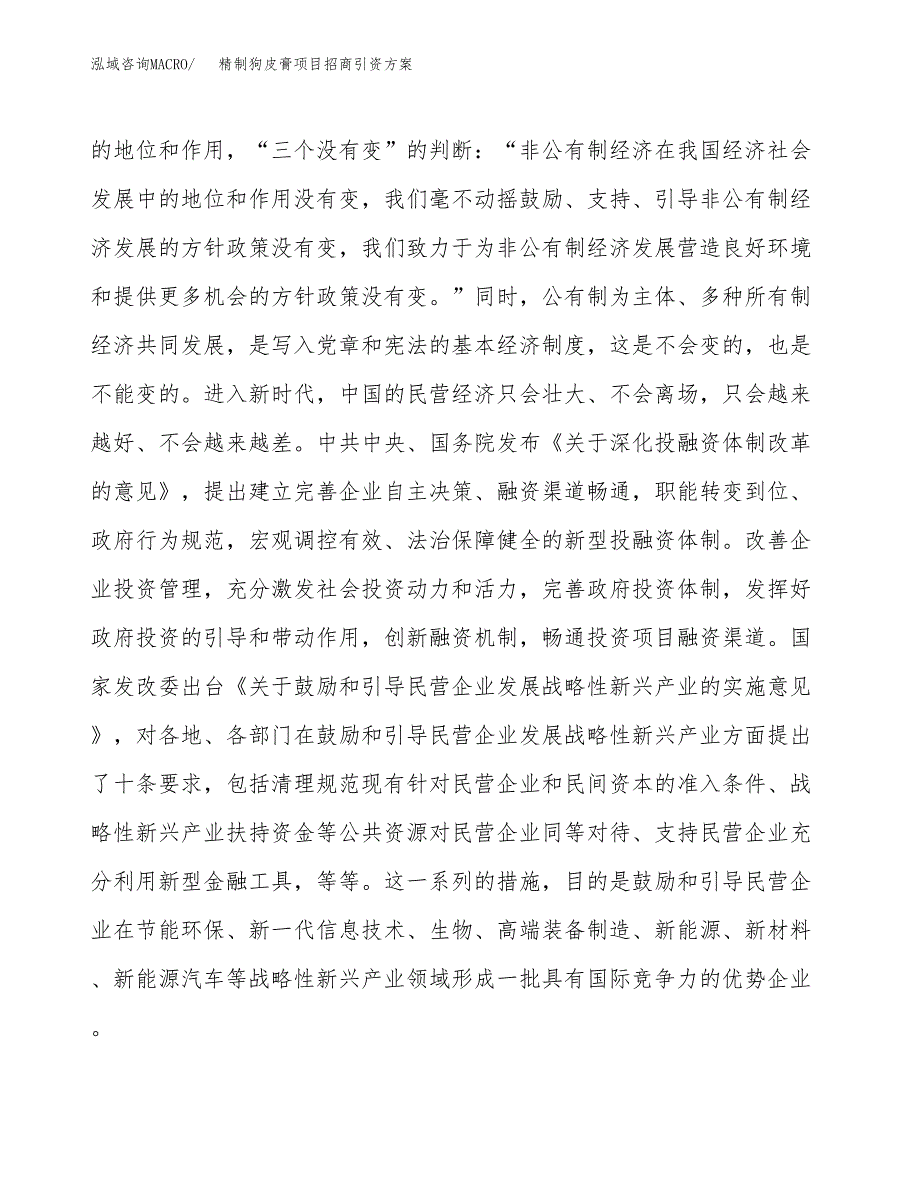 泓域咨询MACRO/ 精制狗皮膏项目招商引资方案
的地位和作用，“三个没有变”的判断：“非公有制经济在我国经济社会
发展中的地位和作用没有变，我们毫不动摇鼓励、支持、引导非公有制经
济发展的方针政策没有变，我们致力于为非公有制经济发展营造良好环境
和提供更多机会的方针政策没有变。”同时，公有制为主体、多种所有制
经济共同发展，是写入党章和宪法的基本经济制度，这是不会变的，也是
不能变的。进入新时代，中国的民营经济只会壮大、不会离场，只会越来
越好、不会越来越差。中共中央、国务院发布《关于深化投融资体制改革
的意见》，提出建立完善企业自主决策、融资渠道畅通，职能转变到位、
政府行为规范，宏观调控有效、法治保障健全的新型投融资体制。改善企
业投资管理，充分激发社会投资动力和活力，完善政府投资体制，发挥好
政府投资的引导和带动作用，创新融资机制，畅通投资项目融资渠道。国
家发改委出台《关于鼓励和引导民营企业发展战略性新兴产业的实施意见
》，对各地、各部门在鼓励和引导民营企业发展战略性新兴产业方面提出
了十条要求，包括清理规范现有针对民营企业和民间资本的准入条件、战
略性新兴产业扶持资金等公共资源对民营企业同等对待、支持民营企业充
分利用新型金融工具，等等。这一系列的措施，目的是鼓励和引导民营企
业在节能环保、新一代信息技术、生物、高端装备制造、新能源、新材料
、新能源汽车等战略性新兴产业领域形成一批具有国际竞争力的优势企业
。